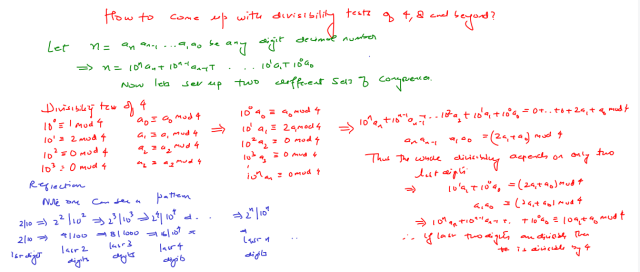 How to come up with divisibility tests of 4, 8 and beyond?
Let n = aₙ aₙ₋₁ ... a₁a₀ be any digit decimal number
⇒ n = 10ⁿaₙ + 10ⁿ⁻¹aₙ₋₁ + . . . . 10¹a₁ + 10⁰a₀
Now lets set up two different sets of congruence.
Divisibility test of 4
10⁰ ≡ 1 mod 4
10¹ ≡ 2 mod 4
10² ≡ 0 mod 4
10³ ≡ 0 mod 4
a₀ ≡ a₀ mod 4
a₁ ≡ a₁ mod 4
a₂ ≡ a₂ mod 4
a₂ ≡ a₂ mod 4
⇒
10⁰ a₀ ≡ a₀ mod 4
10¹ a₁ ≡ 2a₁ mod 4
10² a₂ ≡ 0 mod 4
10³ a₃ ≡ 0 mod 4
10ⁿ aₙ ≡ 0 mod 4
⇒ 10ⁿaₙ + 10ⁿ⁻¹aₙ₋₁ ... 10²a₂ + 10¹a₁ + 10⁰a₀ = 0 + .. + 0 + 2a₁ + a₀ mod 4
aₙ aₙ₋₁ a₁ a₀ = (2a₁ + a₀) mod 4
Thus the whole divisibility depends on only two
last digits
⇒ 10¹a₁ + 10⁰a₀ = (2a₁ + a₀) mod 4
a₁a₀ = (2a₁ + a₀) mod 4
⇒ 10ⁿaₙ + 10ⁿ⁻¹aₙ₋₁ + . . + 10⁰a₀ ≡ 10a₁ + a₀ mod 4
∴ If last two digits are divisible then
# is divisible by 4
Reflection
one can see a pattern
2|10 ⇒ 2²|10² ⇒ 2³|10³ ⇒ 2⁴|10⁴ ... ⇒ 2ⁿ|10ⁿ
2|10 ⇒ 4|100 ⇒ 8|1000 ⇒ 16|10⁴
last digit last 2 digits last 3 digits last 4 digits last n digits